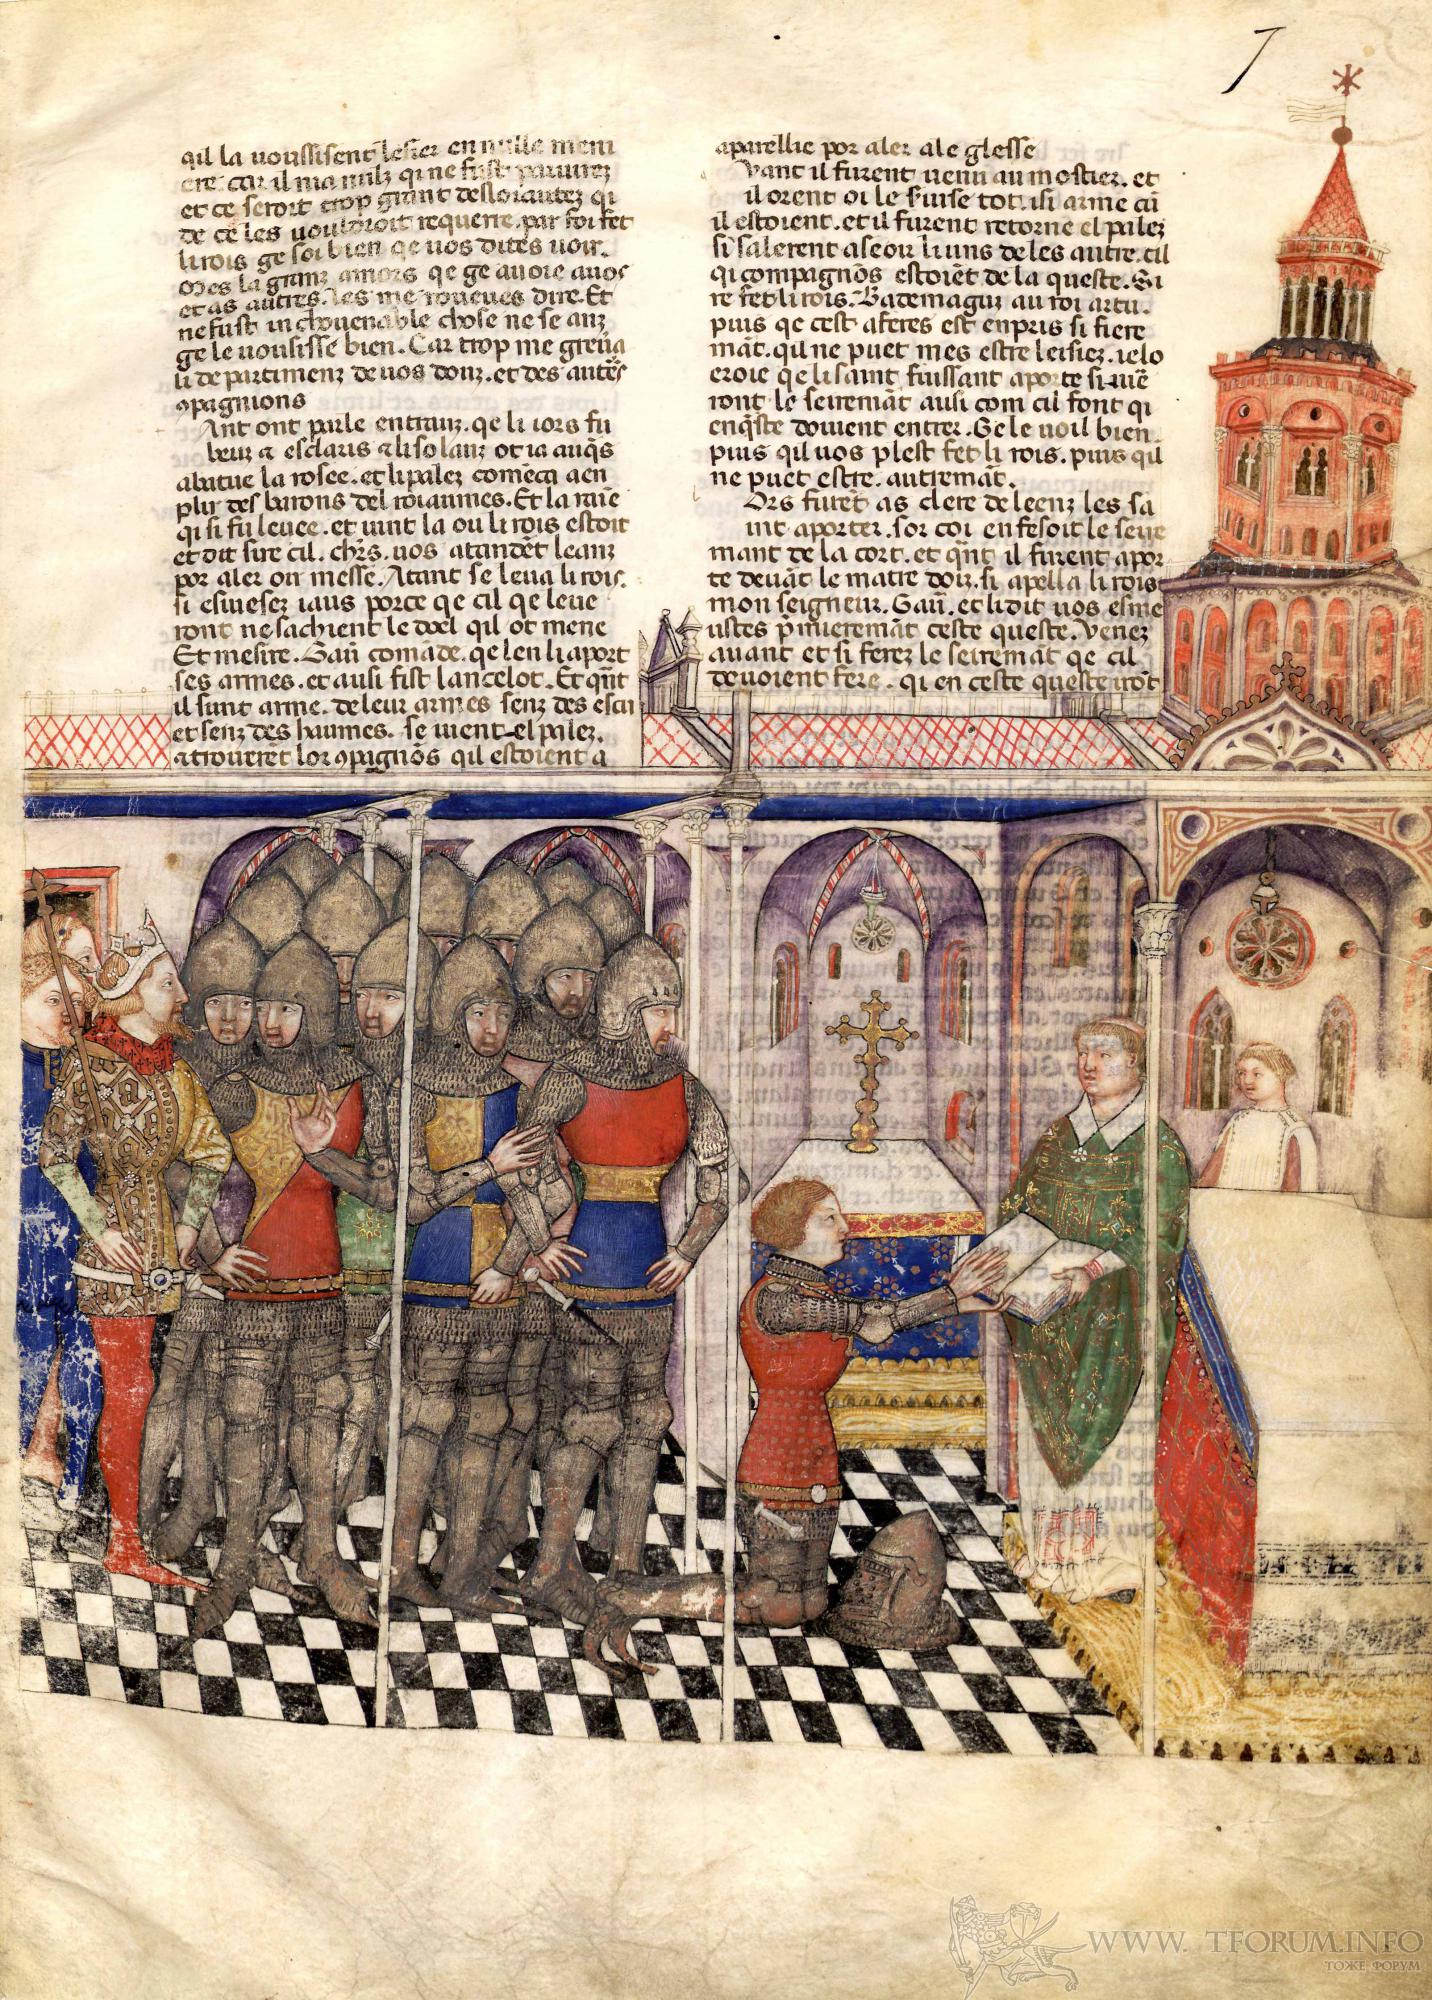 7
qil la uousissent lesier en nulle meni
ere. car il ma nulz qi ne fust pariurez
et ce seroit trop grant desloiautez qi
de ce les uouldroit requerre. par foi fet
li rois ge soi bien qe uos dites uoir.
mes la grant amors qe ge auoie auos
et as autres. les me
ne fust in chouenable chose ne se anz
ge le uousisse bien. Car trop me greua
li departimenz de uos donz. et des autes
9pagnions
Ant ont parle entrauz. qe li iors fu
beuz a esclaris a li solauz ot ia auqs
abatue la rosee. et li palez comēca aen
plir des barons del roiaumes. Et la raīe
qi si fu leuee. et uint la ou li rois estoit
et dit sire cil. chrs. uos atandēt leanz
por aler oir messe. Atant se leua li rois.
si esuiesez iaus porce qe cil qe leue
ront ne sachient le doel qil ot mene
Et mesire. Gaū comāde. qe len li aport
ses armes. et ausi fist lancelot. Et qnt
il sunt arme. de leur armes senz des escu
et senz des hiaumes. se uient el palez.
a trouerēt lor 9pagnōs qil estoient a
aparellie por aler ale glesse
Vant il furent uenu au mostier. et
il orent oi le seruise tot. isi arme cū
il estoient. et il furent retorne el palez
si salerent aseoir li uns deles autre. cil
qi compagnōs estoiēt de la queste. Si
re fet li rois. Bademaguz au roi artu.
puis qe cest aferes est enpris si fiere
māt. qil ne puet mes estre leisiez. ie lo
eroie qe li saint fuissant aporte si iue
ront le seiremāt ausi com cil font qi
enqste doiuent entrer. Ge le uoil bien.
puis qil uos plest fet li rois. puis qil
ne puet estre. autremāt.
Ors furēt as clere de leenz les sa
int aporter. sor coi en fesoit le seire
mant de la cort. et qnt il furent apor
te deuāt le matre doiz. si apella li rois
mon seigneur. Gaū. et li dit uos esme
ustes pmieremāt ceste queste. Venez
auant et si ferez le seiremāt qe cil
deuoient fere. qi en ceste queste irōt
WWW. TFORUM.INFO
ТОЖЕ ФОРУМ